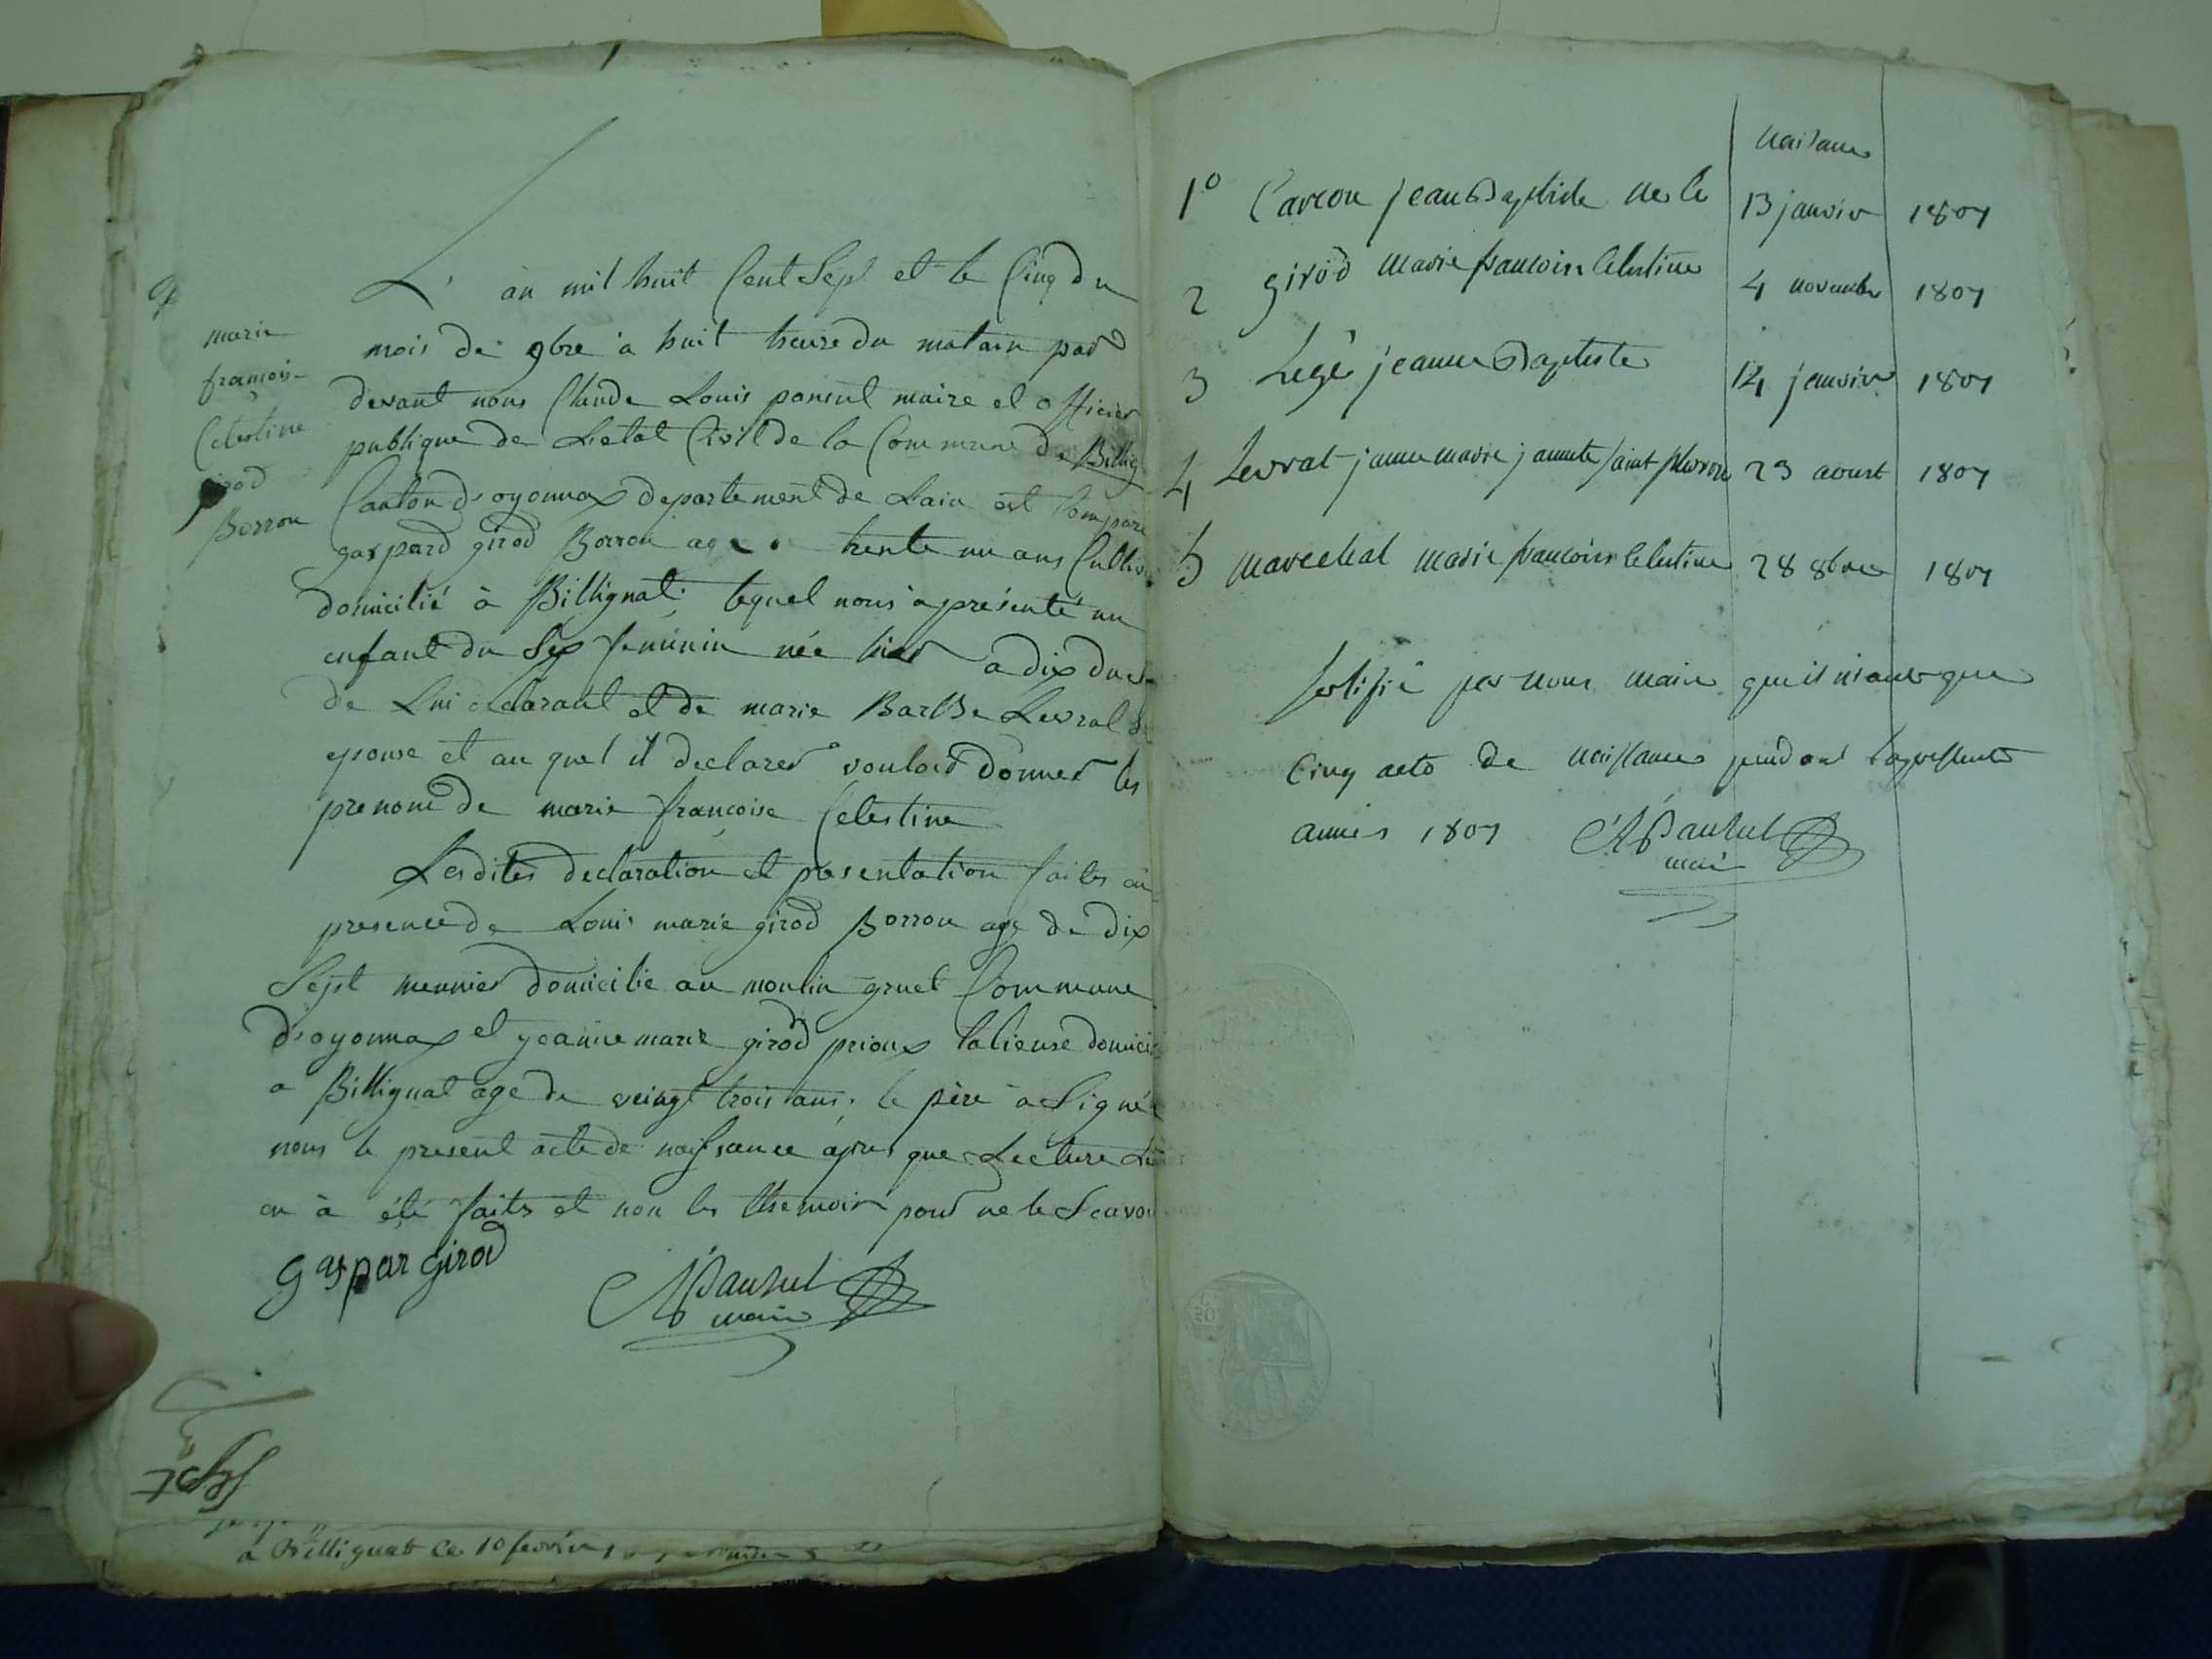 marie
francois
Celestine
girod
Borron
L'an mil huit Cent Sept et le Cinq du
mois de 9bre à huit heure du matain pard
devant nous Claude Louis ponsut maire et officier
publique de L'etat Civil de la Commune de Billig
Canton d'oyonnax departement de Lain est Compare
gaspard girod Borron age trente un ans Cultiv
domicilié à Billignat lequel nous à présenté un
enfant du Sex feminin née hier a dix du
de Lui declarant et de marie BarBe Levrat
epouse et au quel il declarer vouloir donner les
prenom de marie francoise Celestine
Lesdites declaration et presentation faites en
presence de Loui marie girod Borron age de dix
Sept meunier domicilie au moulin gruet Commune
d'oyonnax et jeanne marie girod prioux talieuse domici
a Billignat age de veingt trois ans. le père à Signé
nous le present acte de naissance apres que Lecture
en à été faits et non les themoin pour ne le Scavoi
gaspar girod
maire
a Billignat Ce 10 fevrier
Naisance
1º Carcon jean Baptiste ne le 13 janvier 1807
2 girod marie francoise Celestine 4 novembre 1807
3 Legé jeanne Baptiste 14 janvier 1807
4 Levrat janne marie jannete 23 aoust 1807
5 marechal marie francoise Celestine 28 8bre 1807
Certifié par nous maire que il ni a que
Cinq acte de naissance pendant la presente
année 1807
maire